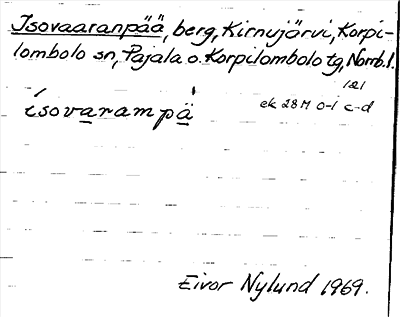 Isovaaranpää, berg, Kirnujärvi, Korpi-
lombolo sn, Pajala o. Korpilombolo tg, Norrb. l.
121
ísovarampä
ek 28 M 0-1 c-d
Eivor Nylund 1969.